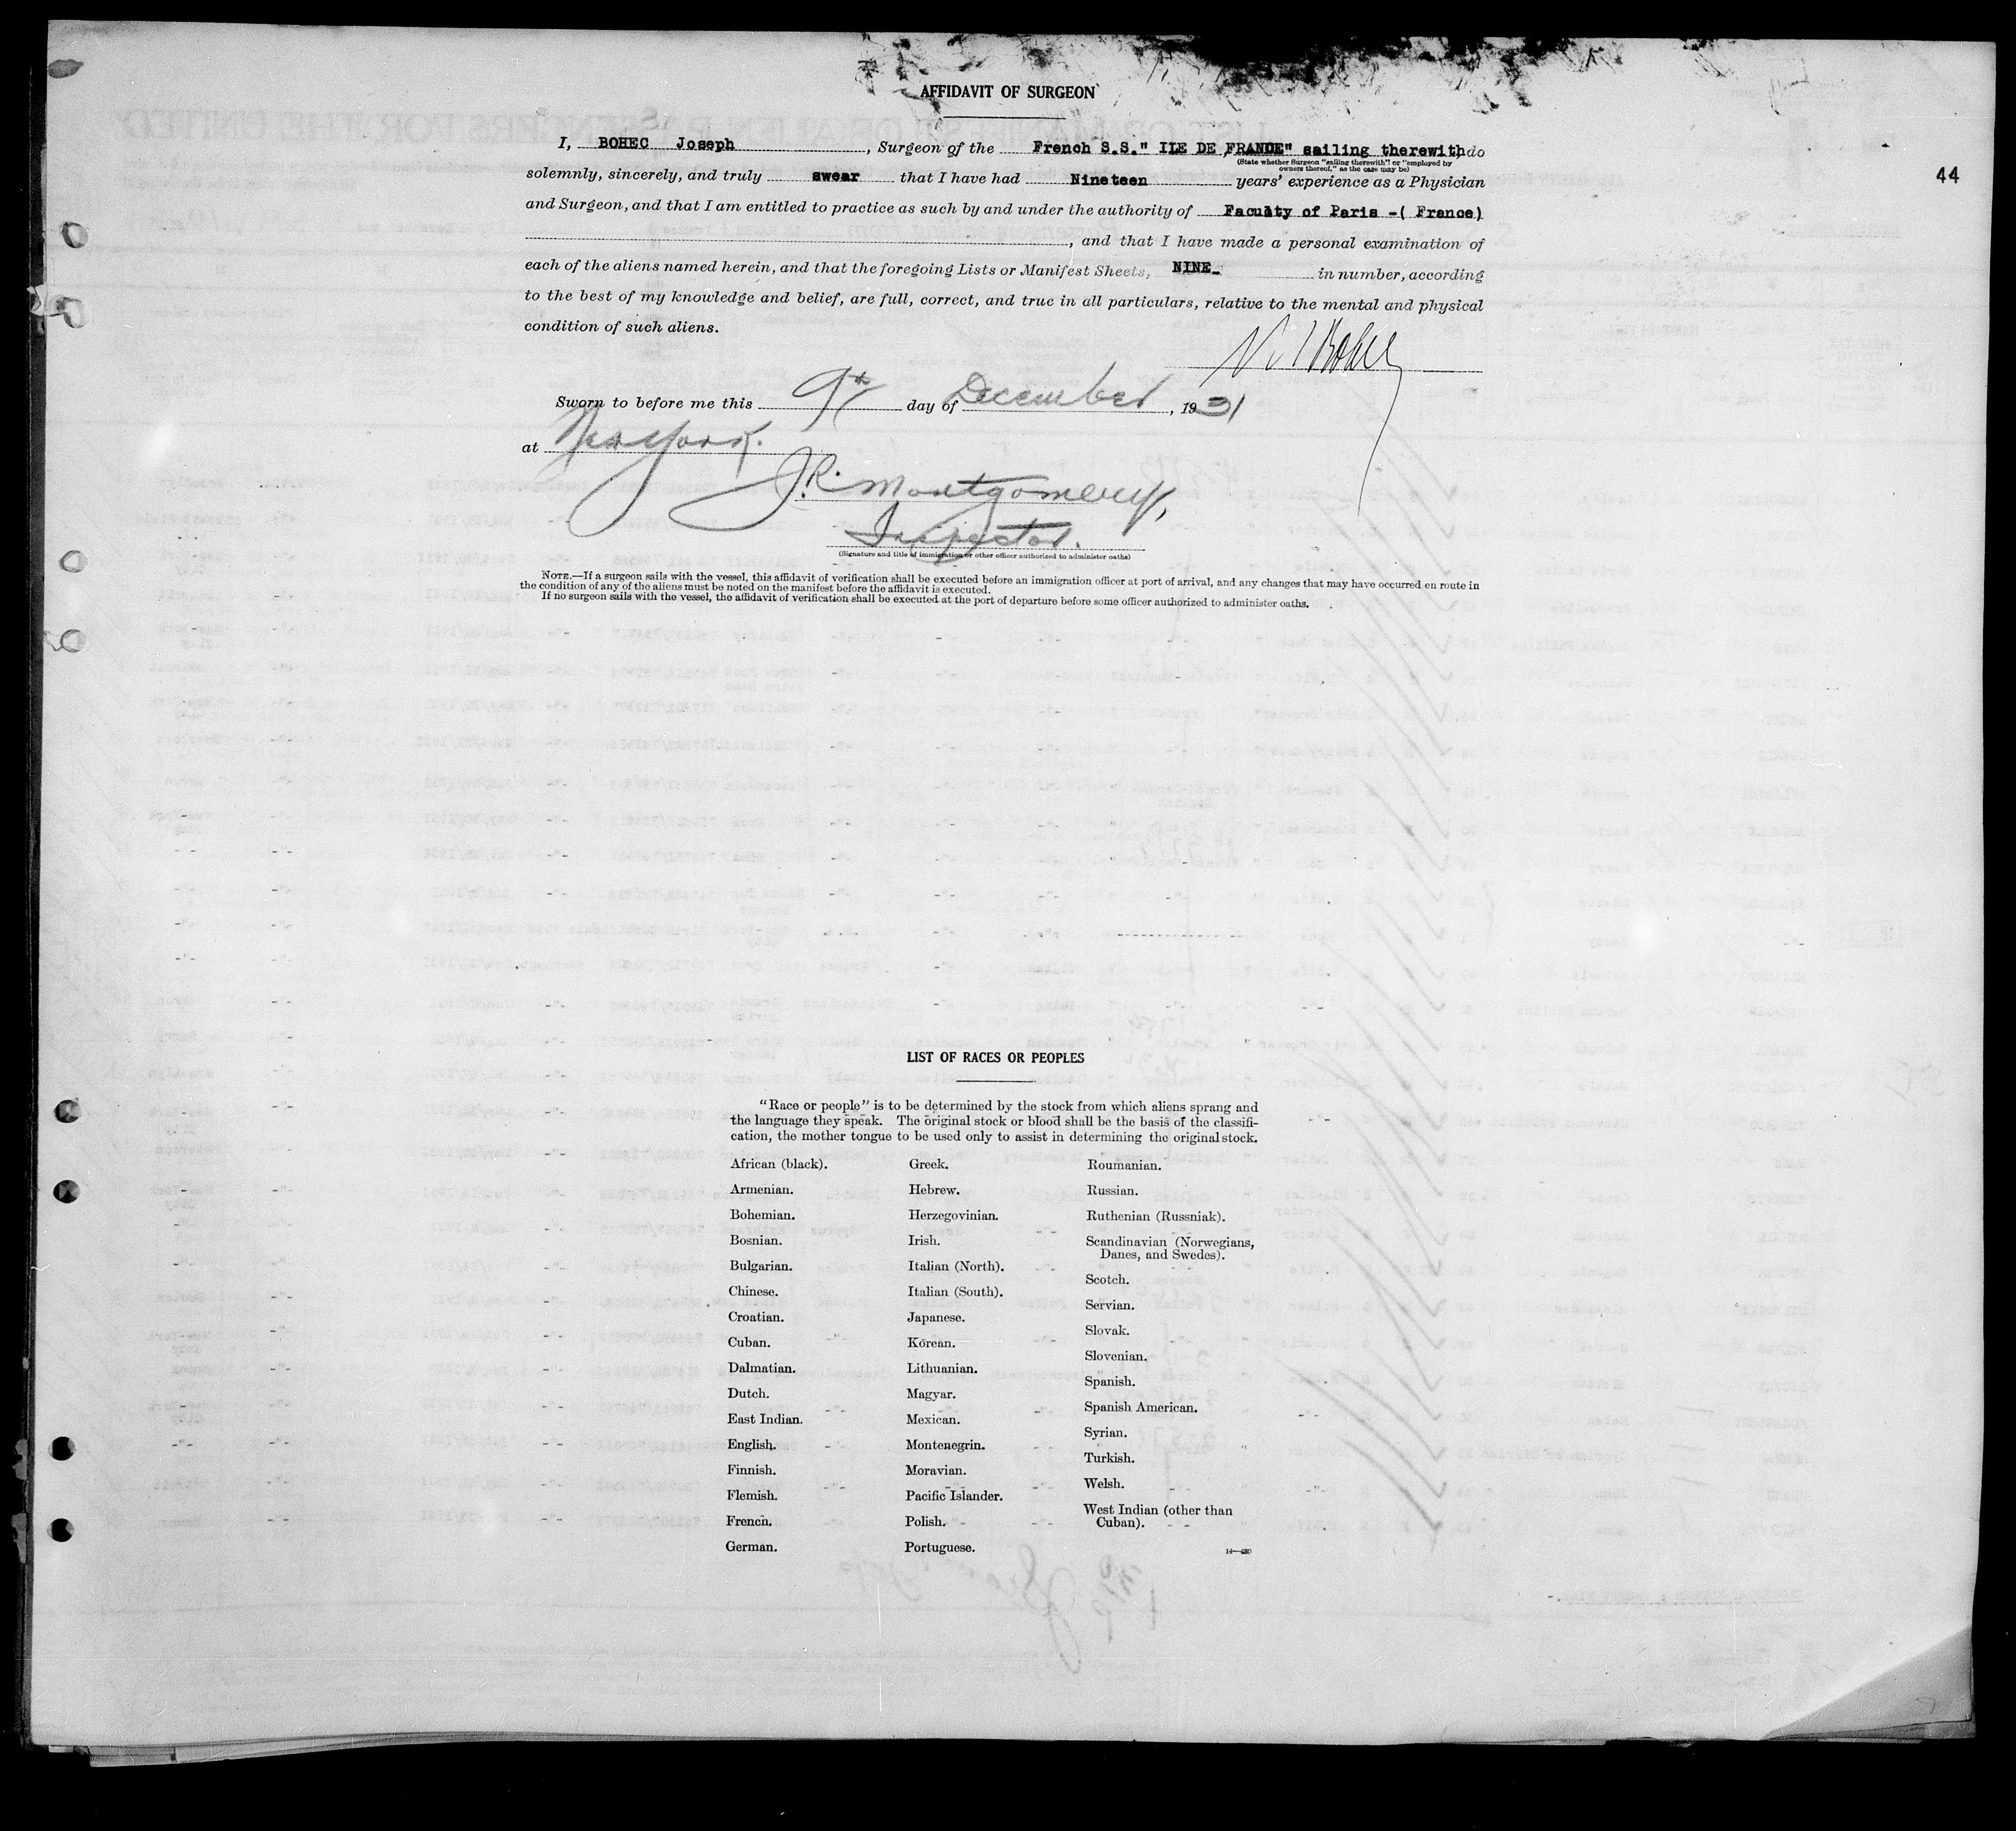 AFFIDAVIT OF SURGEON
44
I, BOHEC Joseph, Surgeon of the French S.S." ILE DE FRANCE" sailing therewith, do
(State whether Surgeon "sailing therewith" or "employed by
owners thereof," as the case may be)
solemnly, sincerely, and truly swear that I have had Nineteen years' experience as a Physician
and Surgeon, and that I am entitled to practice as such by and under the authority of Faculty of Paris -( France)
, and that I have made a personal examination of
each of the aliens named herein, and that the foregoing Lists or Manifest Sheets, NINE_ in number, according
to the best of my knowledge and belief, are full, correct, and true in all particulars, relative to the mental and physical
condition of such aliens.
Sworn to before me this 9th day of December, 1931
at New York.
J.R. Montgomery,
Inspector.
(Signature and title of immigration or other officer authorized to administer oaths)
NOTE.—If a surgeon sails with the vessel, this affidavit of verification shall be executed before an immigration officer at port of arrival, and any changes that may have occurred en route in
the condition of any of the aliens must be noted on the manifest before the affidavit is executed.
If no surgeon sails with the vessel, the affidavit of verification shall be executed at the port of departure before some officer authorized to administer oaths.
LIST OF RACES OR PEOPLES
"Race or people" is to be determined by the stock from which aliens sprang and
the language they speak. The original stock or blood shall be the basis of the classifi-
cation, the mother tongue to be used only to assist in determining the original stock.
African (black).
Armenian.
Bohemian.
Bosnian.
Bulgarian.
Chinese.
Croatian.
Cuban.
Dalmatian.
Dutch.
East Indian.
English.
Finnish.
Flemish.
French.
German.
Greek.
Hebrew.
Herzegovinian.
Irish.
Italian (North).
Italian (South).
Japanese.
Korean.
Lithuanian.
Magyar.
Mexican.
Montenegrin.
Moravian.
Pacific Islander.
Polish.
Portuguese.
Roumanian.
Russian.
Ruthenian (Russniak).
Scandinavian (Norwegians,
Danes, and Swedes).
Scotch.
Servian.
Slovak.
Slovenian.
Spanish.
Spanish American.
Syrian.
Turkish.
Welsh.
West Indian (other than
Cuban).